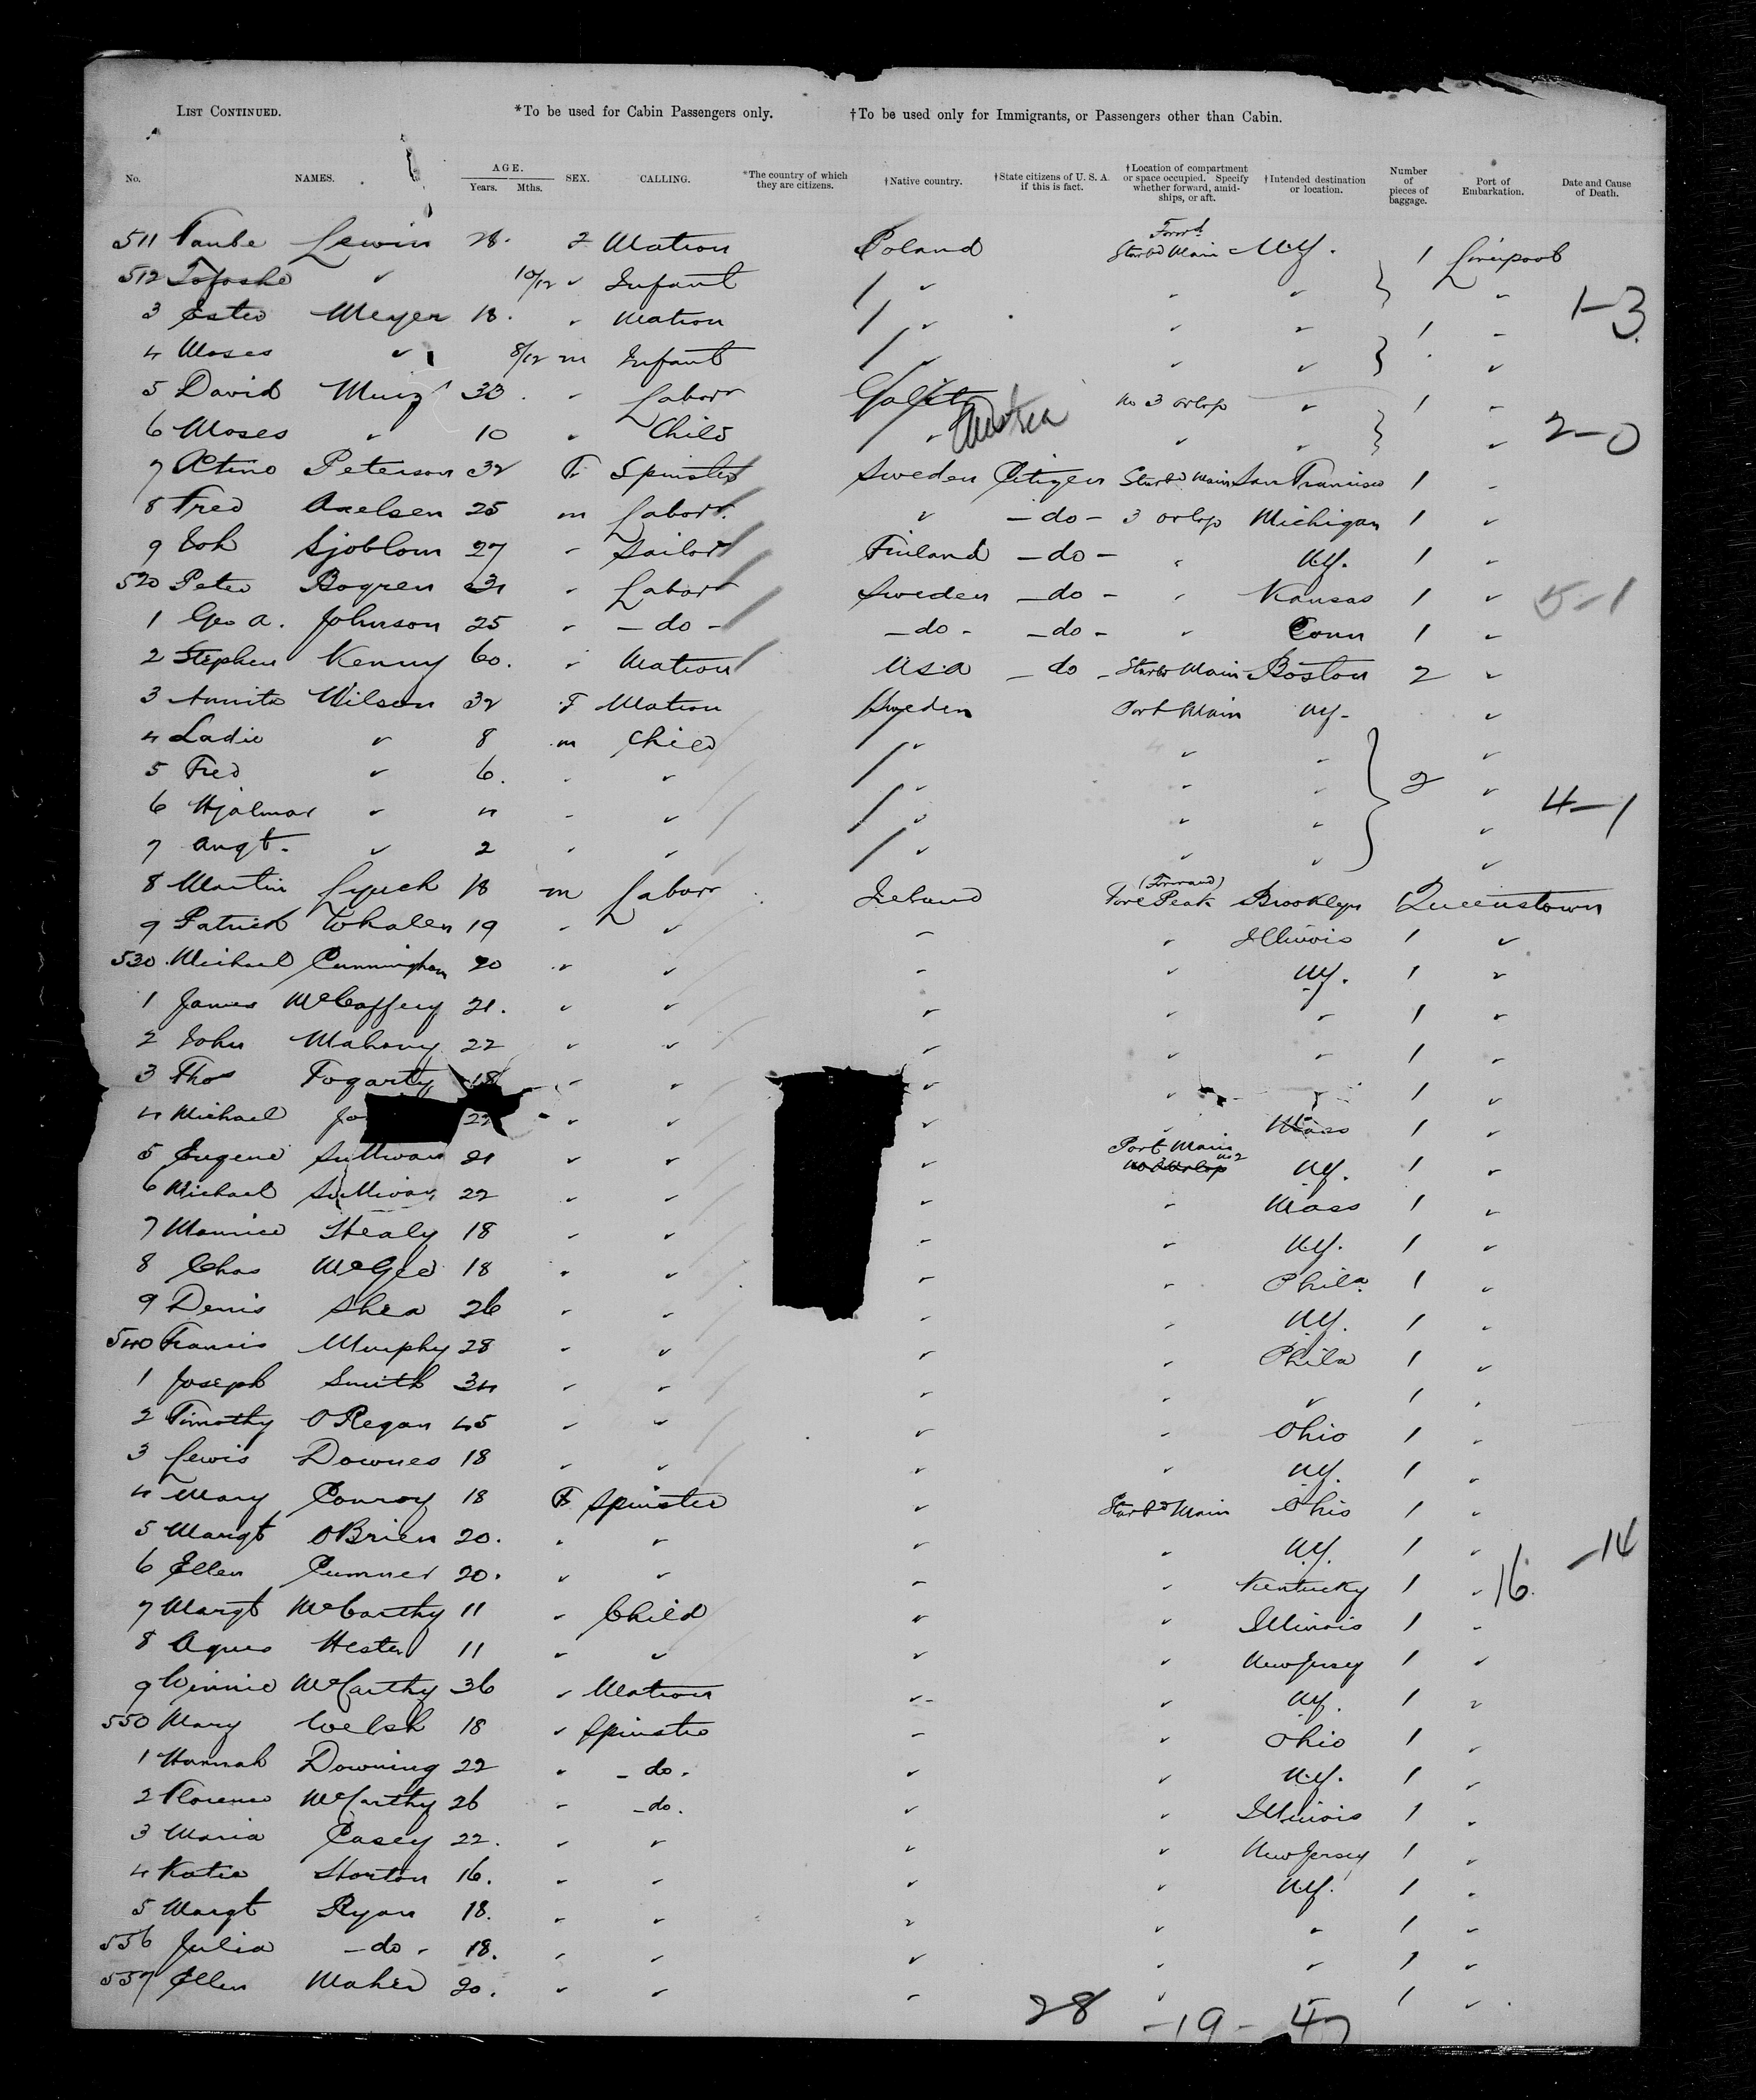 LIST CONTINUED. *To be used for Cabin Passengers only. †To be used only for Immigrants, or Passengers other than Cabin.
No. NAMES. AGE. Years. Mths. SEX. CALLING. *The country of which they are citizens. †Native country. †State citizens of U. S. A. if this is fact. †Location of compartment or space occupied. Specify whether forward, amidships, or aft. †Intended destination or location. Number of pieces of baggage. Port of Embarkation. Date and Cause of Death.
511 Taube Lewin 28. Matron Poland Forwd Starbd Main N.Y. 1 Liverpool
512 ✓ 10/12 ✓ Infant ✓ ✓ ✓ ✓
3 Ester Meyer 18. ✓ Matron ✓ ✓ ✓ 1 ✓ 1-3
4 Moses ✓ 8/12 m Infant ✓ ✓ ✓ ✓
5 David 30. ✓ Labour Austria No 3 orlop ✓ 1 ✓
6 Moses ✓ 10 ✓ Child ✓ ✓ ✓ ✓ 2-0
7 Peterson 32 F Spinster Sweden Citizen Starbd Main San Francisco 1 ✓
8 Fred Axelsen 25 m Labour. ✓ -do- 3 orlop Michigan 1 ✓
9 Joh Sjoblom 27 ✓ Sailor Finland -do- ✓ N.Y. 1 ✓
520 Peter Bogren 31 ✓ Labour Sweden -do- ✓ Kansas 1 ✓ 5-1
1 Geo A. Johnson 25 ✓ -do- -do- -do- ✓ Conn 1 ✓
2 Stephen Kenny 60. ✓ Matron USA -do- Starbd Main Boston 2 ✓
3 Wilson 32 F Matron Sweden Port Main N.Y- ✓
4 Ladie ✓ 8 m Child ✓ ✓ ✓ ✓
5 Fred ✓ 6. ✓ ✓ ✓ ✓ ✓ 2 ✓
6 Hjalmar ✓ 4 ✓ ✓ ✓ ✓ ✓ ✓ 4-1
7 Augt. ✓ 2 ✓ ✓ ✓ ✓ ✓ ✓
8 Martin Lynch 18 m Labour Ireland (Forward) Fore Peak Brooklyn Queenstown
9 Patrick Whalen 19 ✓ ✓ ✓ ✓ Illinois 1 ✓
530 Michael Cunningham 20 ✓ ✓ ✓ ✓ N.Y. 1 ✓
1 James McCaffery 21. ✓ ✓ ✓ ✓ ✓ 1 ✓
2 John Mahony 22 ✓ ✓ ✓ ✓ ✓ 1 ✓
3 Thos Fogarty 18 ✓ ✓ ✓ ✓ 1 ✓
4 Michael Jo 22 ✓ ✓ ✓ ✓ Mass 1 ✓
5 Eugene Sullivan 21 ✓ ✓ ✓ Port Main No 2 N.Y. 1 ✓
6 Michael Sullivan 22 ✓ ✓ ✓ ✓ Mass 1 ✓
7 Maurice Healy 18 ✓ ✓ ✓ ✓ N.Y. 1 ✓
8 Chas McGee 18 ✓ ✓ ✓ ✓ Phila. 1 ✓
9 Denis Shea 26 ✓ ✓ ✓ ✓ N.Y. 1 ✓
540 Francis Murphy 28 ✓ ✓ ✓ ✓ Phila 1 ✓
1 Joseph Smith 34 ✓ ✓ ✓ ✓ ✓ 1 ✓
2 Timothy O'Regan 45 ✓ ✓ ✓ ✓ Ohio 1 ✓
3 Lewis Downes 18 ✓ ✓ ✓ ✓ N.Y. 1 ✓
4 Mary Conroy 18 F Spinster ✓ Starbd Main Ohio 1 ✓
5 Margt O'Brien 20. ✓ ✓ ✓ ✓ N.Y. 1 ✓ -14
6 Ellen 20. ✓ ✓ ✓ ✓ Kentucky 1 ✓ 16.
7 Margt McCarthy 11 ✓ Child ✓ ✓ Illinois 1 ✓
8 Agnes Hester 11 ✓ ✓ ✓ ✓ New Jersey 1 ✓
9 Winnie McCarthy 36 ✓ Matron ✓ ✓ N.Y. 1 ✓
550 Mary Welsh 18 ✓ Spinster ✓ ✓ Ohio 1 ✓
1 Hannah Downing 22 ✓ -do- ✓ ✓ N.Y. 1 ✓
2 Florence McCarthy 26 ✓ -do. ✓ ✓ Illinois 1 ✓
3 Maria Casey 22. ✓ ✓ ✓ ✓ New Jersey 1 ✓
4 Katie Horton 16. ✓ ✓ ✓ ✓ N.Y. 1 ✓
5 Margt Ryan 18. ✓ ✓ ✓ ✓ ✓ 1 ✓
556 Julia -do- 18. ✓ ✓ ✓ ✓ ✓ 1 ✓
557 Ellen Maher 20. ✓ ✓ ✓ ✓ ✓ 1 ✓
28 -19- 47